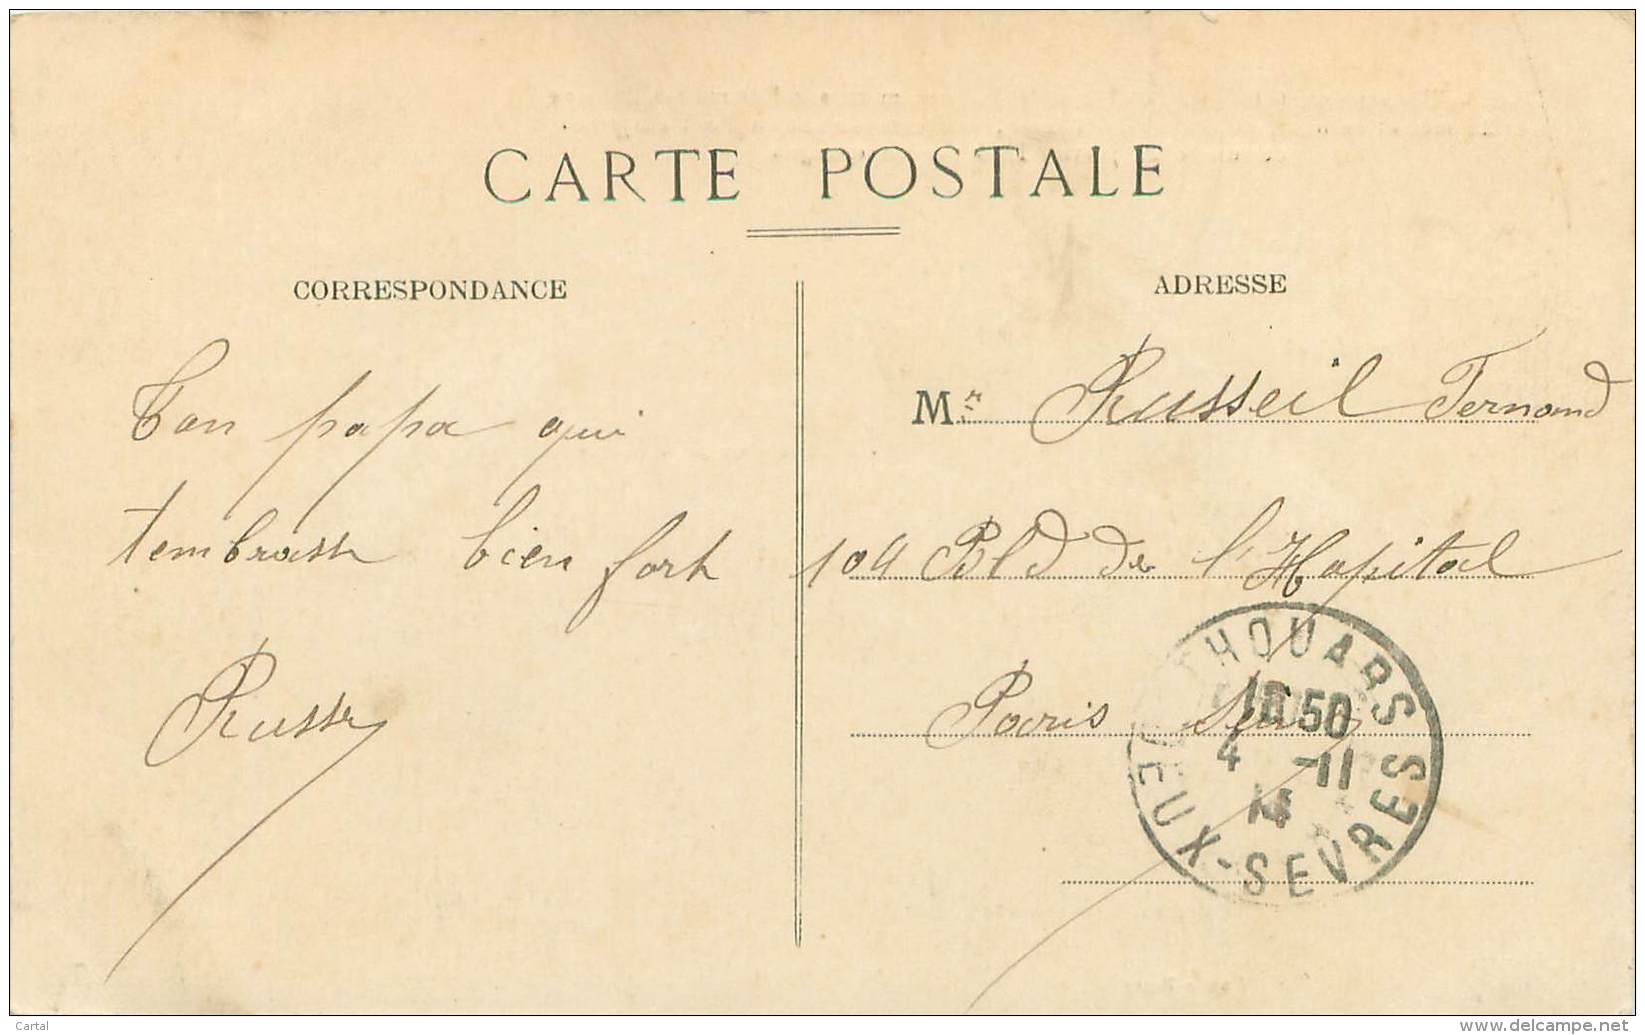 CARTE POSTALE
CORRESPONDANCE
Ton papa qui
tembrasse bien fort
Russeil
ADRESSE
Mr Russeil Fernand
104 Bld de l'Hopital
Paris
THOUARS
50
4 -11
14
DEUX-SEVRES
Cartal
delcampe.net